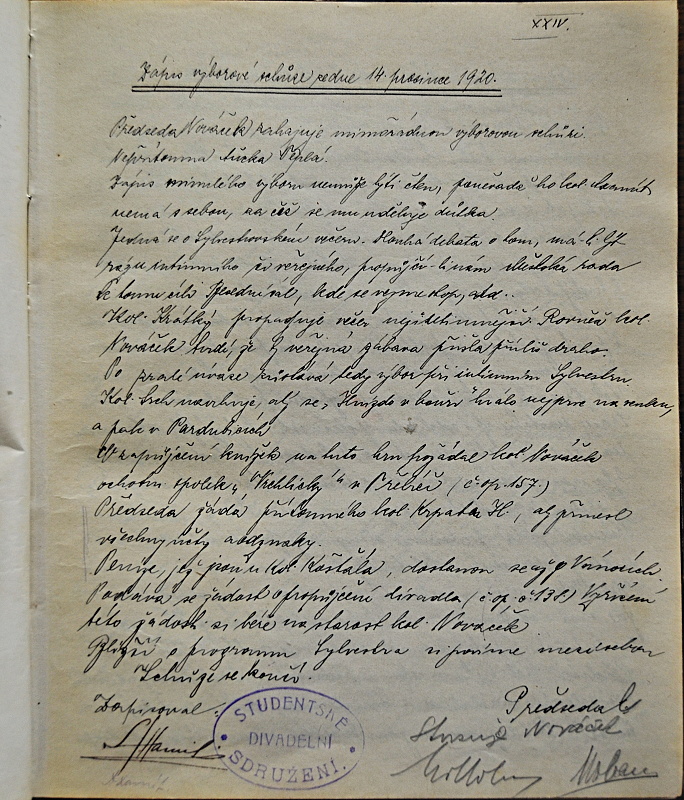 XXIV.
Zápis výborové schůze ze dne 14. prosince 1920.
Předseda Nováček zahajuje mimořádnou výborovou schůzi.
Nepřítomna slečna Teplá.
Zápis minulého výboru nemůže býti čten, poněvadž ho kol.
nemá s sebou, za což se mu uděluje důtka.
Jedná se o Sylvestrovském večeru. Dlouhá debata o tom, má-li býť
rázu intimního či veřejného, propůjčí-li nám Městská rada
k tomu cíli, kde se vezme stop, atd..
Kol. Krátký propaguje večer nejintimnější. Rovněž kol.
Nováček tvrdí, že veřejná zábava přišla příliš draho.
Po zralé úvaze zůstává tedy výbor při intimním Sylvestru.
Kol. navrhuje, aby se „Hnízdo v bouři" hrálo nejprve na venku,
a pak v Pardubicích
O zapůjčení knížek na tuto hru požádal kol. Nováček
ochotn. spolek „Vrchlický" v (č. op. 157.)
Předseda žádá přítomného kol. Krpatu H., aby přinesl
všechny účty a odznaky.
Peníze, jež jsou u kol. Košťála, dostanou se až o Vánocích.
Podává se žádost o propůjčení divadla (č. op. č. 138) Vyřízení
této žádosti si béře na starost kol. Nováček.
Bližší o programu Sylvestra si povíme mezi sebou
Schůze se končí.
Zapisoval:
Předseda
STUDENTSKÉ
DIVADELNÍ
SDRUŽENÍ.
Nováček